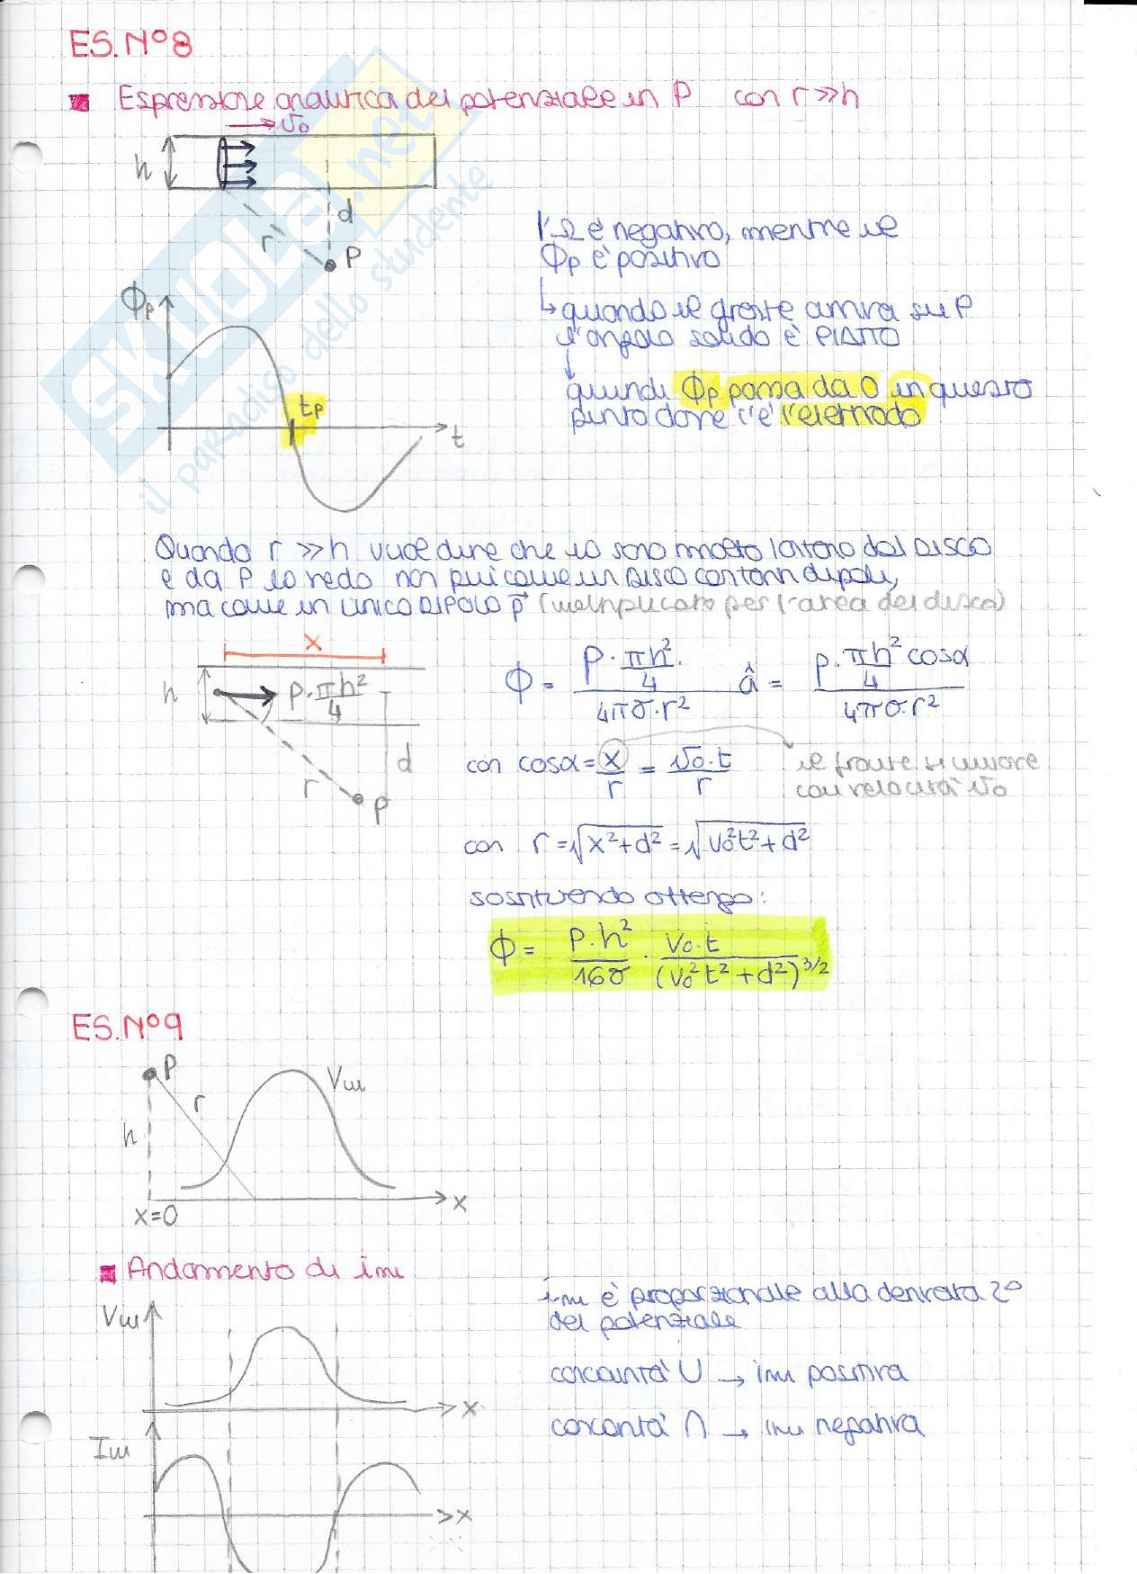 ES. N°8
Espressione analitica del potenziale in P con r >> h
v₀
h
d
r
P
l'Ω è negativo, mentre il
Φp è positivo
Φp
↳ quando il fronte arriva su P
l'angolo solido è PIATTO
↓
quindi Φp passa da 0 in questo
punto dove c'è l'elettrodo
tp
t
Quando r >> h vuol dire che io sono molto lontano dal DISCO
e da P lo vedo non più come un DISCO con tanti dipoli,
ma come un UNICO DIPOLO p⃗ (moltiplicato per l'area del disco)
x
h
p·πh²/4
r
d
P
Φ = (p·πh²/4)/(4πσ·r²) â = (p·πh²/4 cosα)/(4πσ·r²)
con cosα = x/r = v₀·t/r
il fronte si muove
con velocità v₀
con r = √(x²+d²) = √(v₀²t²+d²)
sostituendo ottengo:
Φ = (p·h²)/(16σ) · (v₀·t)/(v₀²t²+d²)^3/2
ES. N°9
P
r
h
Vm
x=0
x
Andamento di im
im è proporzionale alla derivata 2°
del potenziale
Vm
x
concavità ∪ → im positiva
concavità ∩ → im negativa
Im
x
skuola.net
il paradiso dello studente